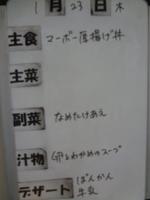 1月23日木
主食 マーボー厚揚げ丼
主菜
副菜 なめたけあえ
汁物 卵とわかめのスープ
デザート ぽんかん
牛乳